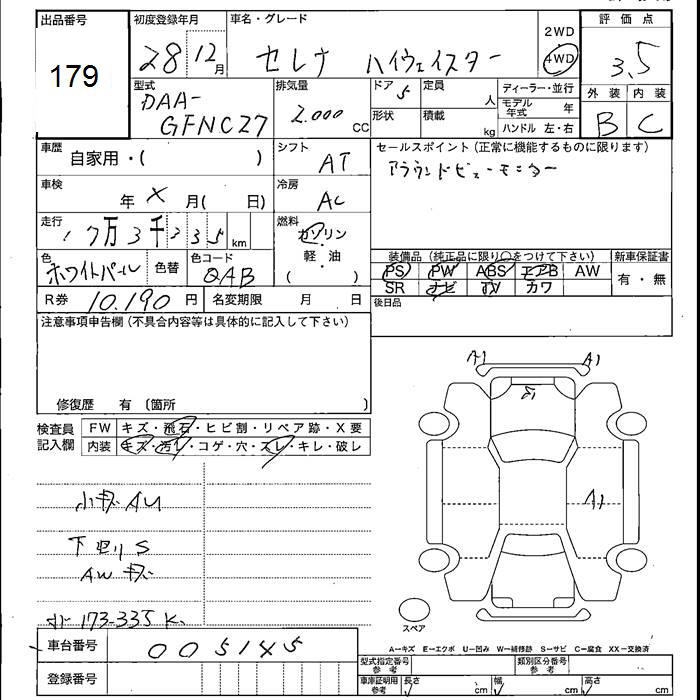 出品番号 初度登録年月 車名・グレード 評価点
179 28 12月 セレナ ハイウェイスター 2WD 4WD 3.5
外装 内装
B C
型式 排気量 ドア 定員 ディーラー・並行
DAA- 2.000 CC 5 人 モデル年式 年
GFNC27 形状 積載 kg ハンドル 左・右
車歴 自家用・( ) シフト AT セールスポイント(正常に機能するものに限ります)
アラウンドビューモニター
車検 年 X 月( 日) 冷房 AC
走行 17万3千335 km 燃料 ガソリン・軽油・( )
色 ホワイトパール 色替 色コード QAB
装備品(純正品に限り○をつけて下さい) 新車保証書
PS PW ABS エアB AW 有・無
SR ナビ TV カワ
R券 10.190円 名変期限 月 日 後日品
注意事項申告欄(不具合内容等は具体的に記入して下さい)
修復歴 有 〔箇所 〕
検査員記入欄 FW キズ・飛石・ヒビ割・リペア跡・X要
内装 キズ・汚レ・コゲ・穴・スレ・キレ・破レ
A1 A1
A1
小キズ AU
下回り S
AW キズ
173-335 K.
スペア
A=キズ E=エクボ U=凹み W=補修跡 S=サビ C=腐食 XX=交換済
車台番号 005145
登録番号
型式指定番号 参考 類別区分番号 参考
車庫証明用 参考 長さ cm 幅 cm 高さ cm